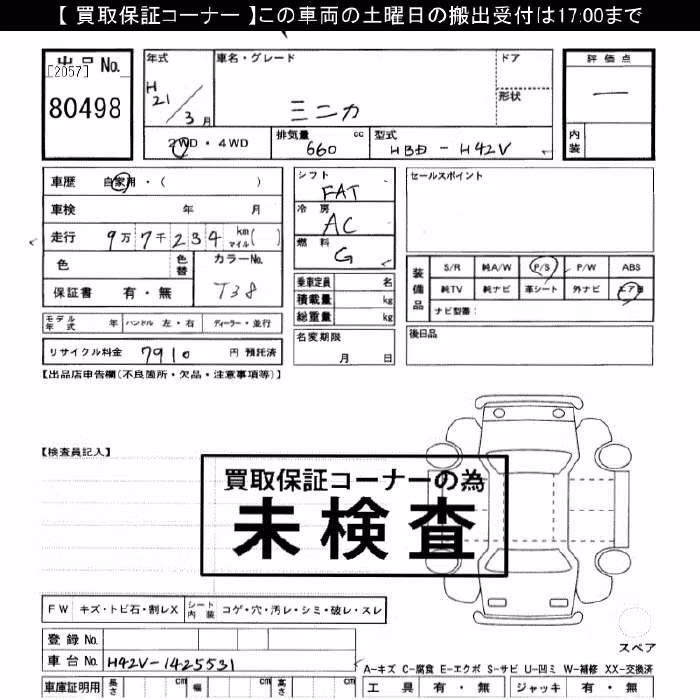 【 買取保証コーナー 】この車両の土曜日の搬出受付は17:00まで
出品No.
[2057]
80498
年式
H
21
3月
車名・グレード
ミニカ
ドア
形状
2WD・4WD
排気量 cc
660
型式
HBD-H42V
評価点
一
内装
車歴 自家用・( )
車検 年 月
走行 9万7千234 km マイル( )
色
色替
カラーNo.
T38
保証書 有・無
モデル年式 年 ハンドル 左・右 ディーラー・並行
リサイクル料金 7910 円 預託済
シフト
FAT
冷房
AC
燃料
G
乗車定員 名
積載量 kg
総重量 kg
名変期限
月 日
セールスポイント
装備品
S/R 純A/W P/S P/W ABS
純TV 純ナビ 革シート 外ナビ
ナビ型番:
後日品
【出品店申告欄(不良箇所・欠品・注意事項等)】
【検査員記入】
買取保証コーナーの為
未検査
FW キズ・トビ石・割レX シート内装 コゲ・穴・汚レ・シミ・破レ・スレ
登録No.
車台No. H42V-1425531
スペア
A-キズ C-腐食 E-エクボ S-サビ U-凹ミ W-補修 XX-交換済
車庫証明用 長さ cm 幅 cm 高さ cm
工具 有・無 ジャッキ 有・無